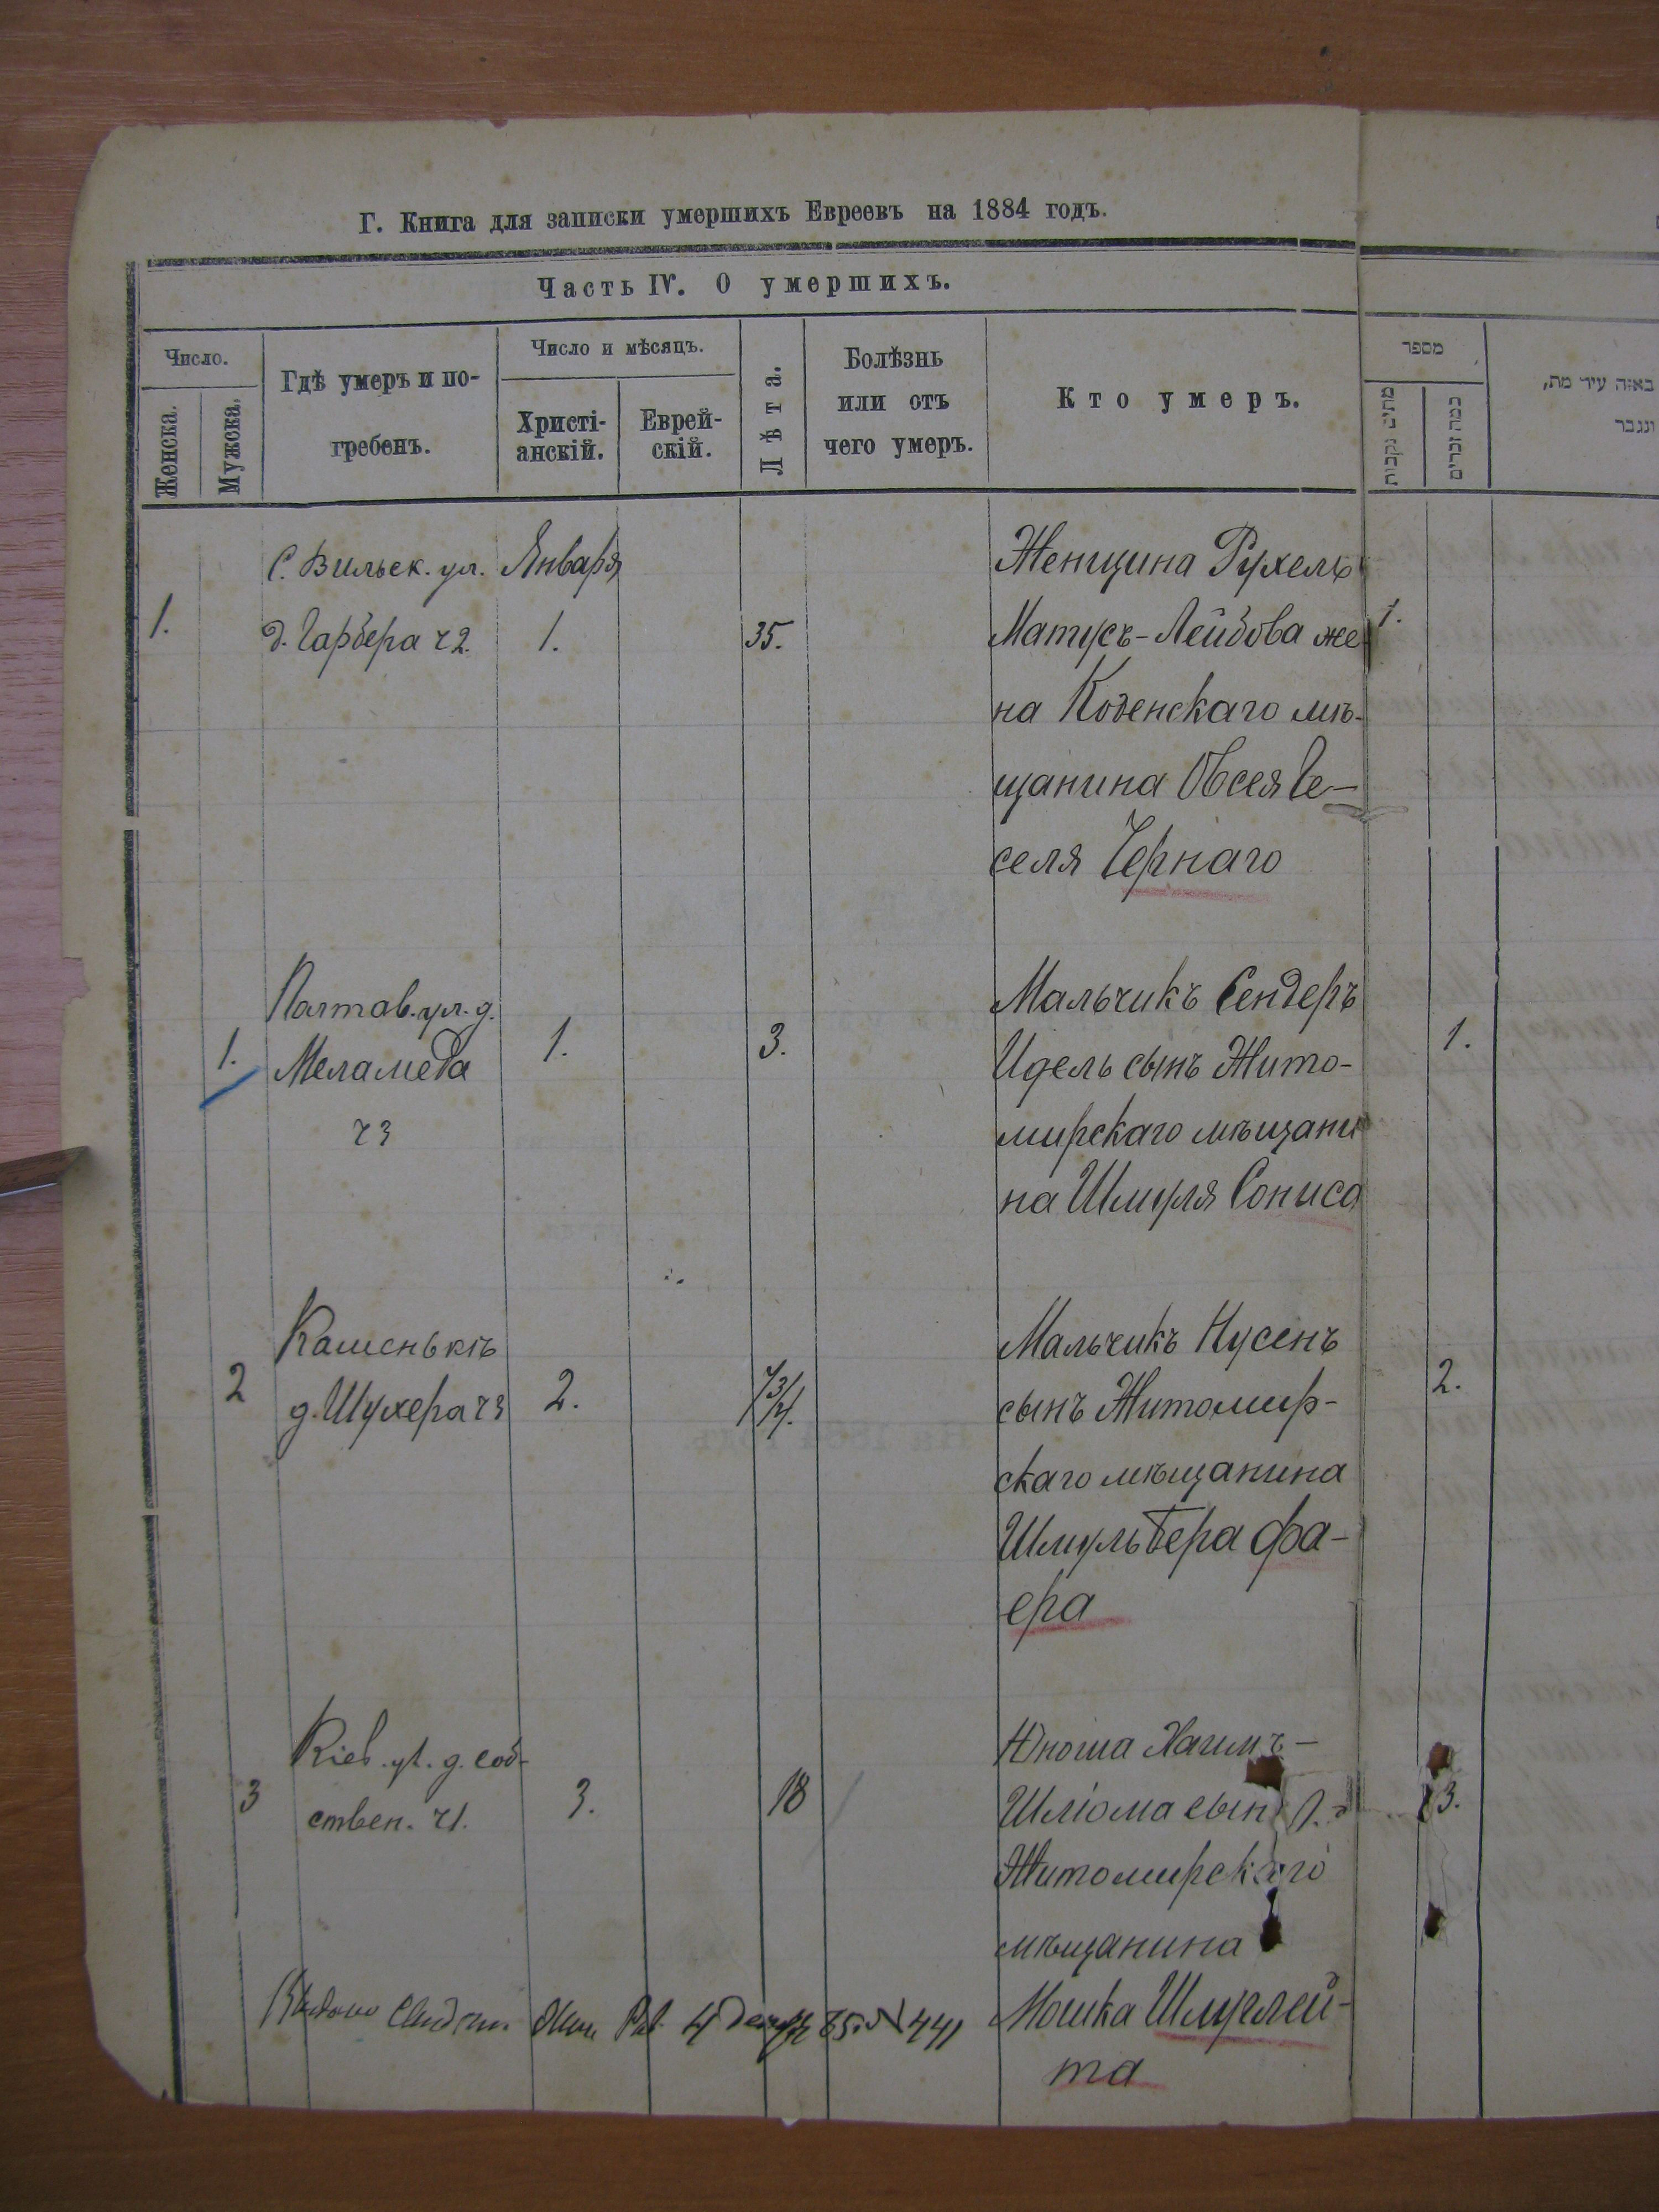 Г. Книга для записки умершихъ Евреевъ на 1884 годъ.
Часть IV. О умершихъ.
Число.
Женска.
Мужска.
Гдѣ умеръ и по-
гребенъ.
Число и мѣсяцъ.
Христі-
анскій.
Еврей-
скій.
Лѣта.
Болѣзнь
или отъ
чего умеръ.
Кто умеръ.
מספר
כמה זכרים
באיזה עיר מת,
ונגבר
1.
С. Вильск. ул.
д. Гарбера ч 2.
Января
1.
35.
Женщина Рухель
Матусъ-Лейбова же-
на Коденскаго мѣ-
щанина Овсея Ге-
селя Чернаго
1.
1.
Полтав. ул. д.
Меламеда
ч 3
1.
3.
Мальчикъ Сендеръ
Идель сынъ Жито-
мирскаго мѣщани
на Шмуля Сониса
1.
2
д. Шухера ч 3
2.
Мальчикъ Нусенъ
сынъ Житомир-
скаго мѣщанина
Шмуль Бера Фа-
ера
2.
3
Кіев. ул. д. соб-
ствен. ч 1.
3.
18
Юноша Хаимъ-
Шліома сын
Житомирскаго
мѣщанина
Мошка Шмуглей-
та
3.